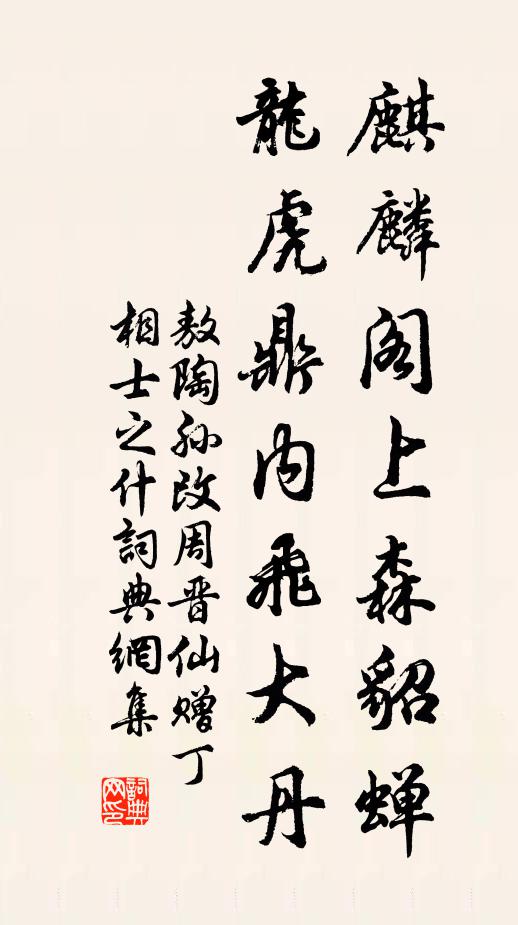 麒麟阁上森貂蝉
龍虎鼎内飛大丹
敖陶孙改周晋仙赠丁
相士之什詞典網集
詞典网印